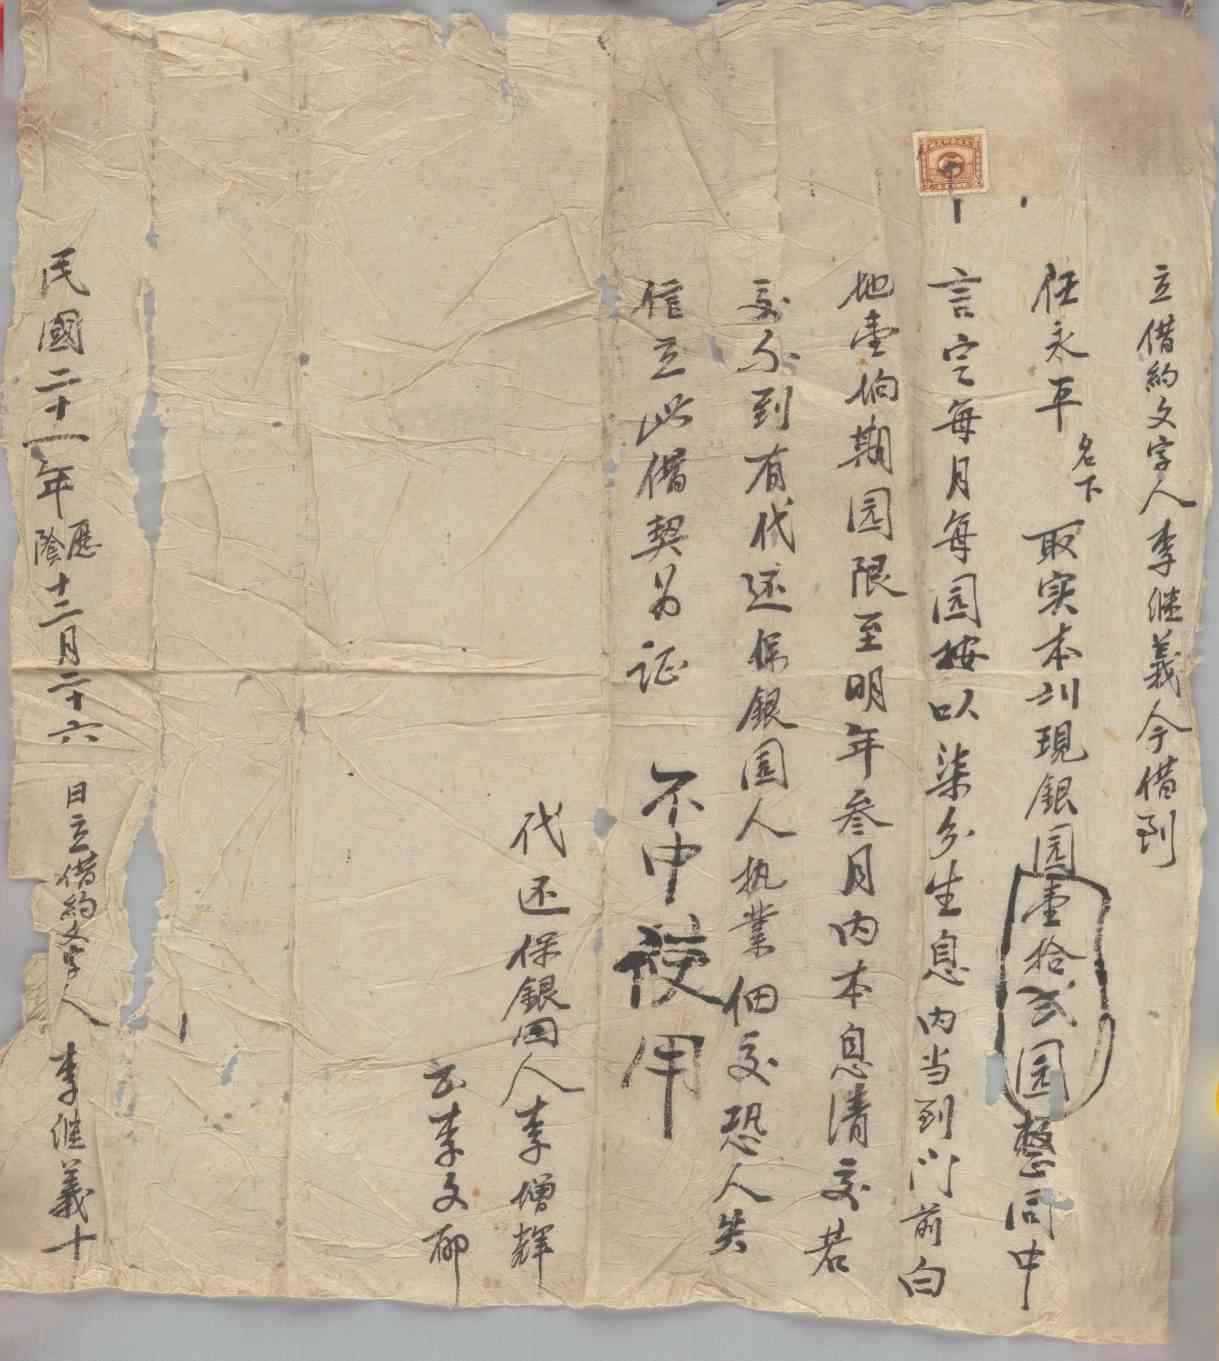 立借約文字人李継義今借到
任永平名下取实本訓現銀园壹拾弍园整同中
言定每月每园按以柒分生息内当到门前白
地壹垧期园限至明年叁月内本息清交若
交不到有代还保銀園人执業佃交恐人失
信立此借契为证 不中使用
代还保銀园人李增輝
立李文郁
民國二十一年陰歷十二月二十六日立借約文字人李継義十